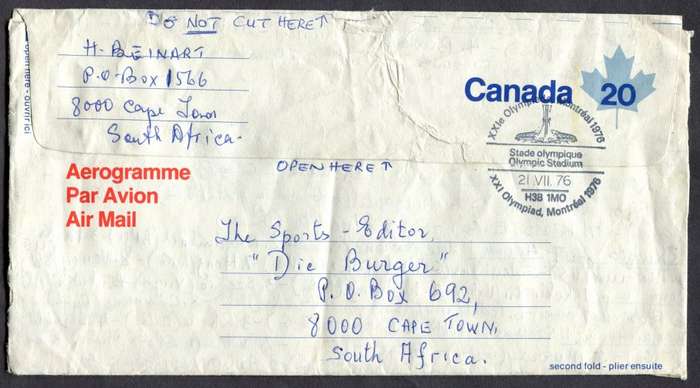 DO NOT CUT HERE↑
open here - ouvrir ici
H. BEINART
P.O. Box 1566
8000 Cape Town
South Africa.
Canada 20
XXIe Olympiade, Montréal 1976
Stade olympique
Olympic Stadium
21 VII. 76
H3B 1M0
XXI Olympiad, Montréal 1976
Aerogramme
Par Avion
Air Mail
OPEN HERE↑
The Sports-Editor,
"Die Burger"
P.O. Box 692,
8000 CAPE TOWN,
South Africa.
second fold - plier ensuite